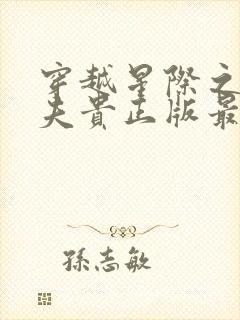 穿越星際之
夫貴正版最
孫志敏